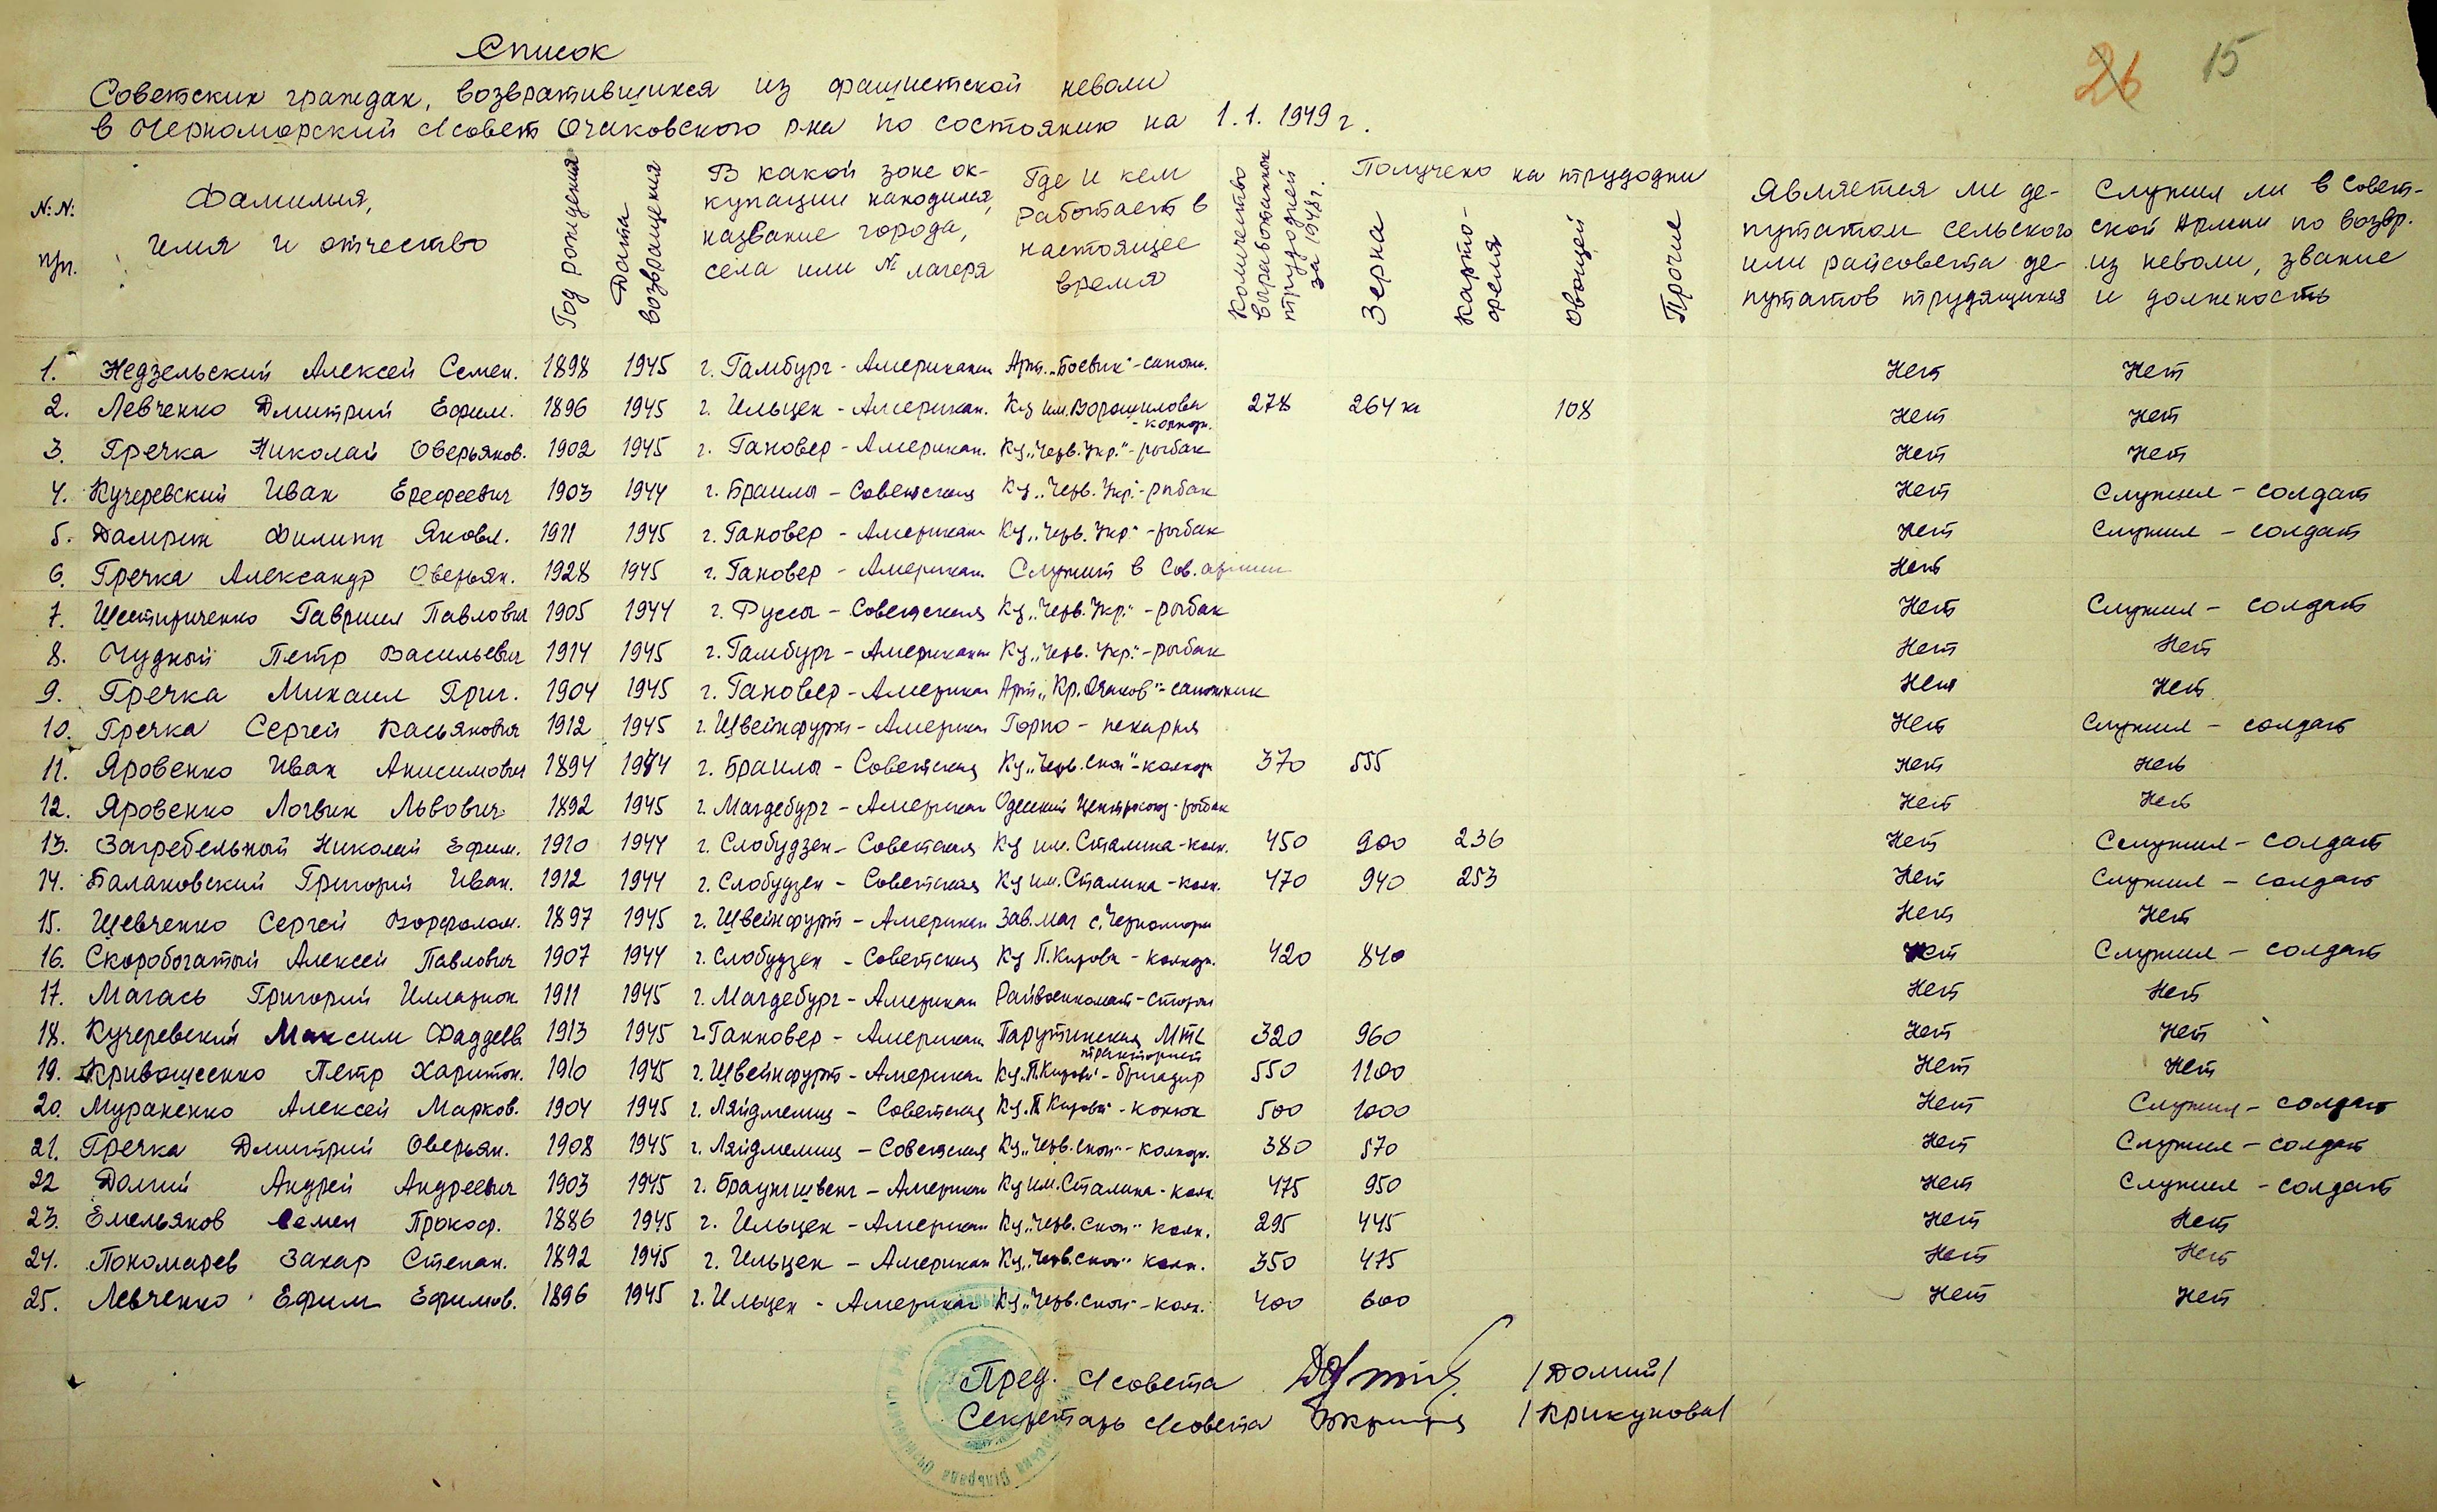 26 15
Список
Советских граждан, возвратившихся из фашистской неволи
в Черноморский с/совет Очаковского р-на по состоянию на 1.1.1949 г.
№:№: п/п. Фамилия, имя и отчество Год рождения Дата возвращения В какой зоне оккупации находился, название города, села или № лагеря Где и кем работает в настоящее время Количество выработанных трудодней за 1948 г. Получено на трудодни Зерна Картофеля Овощей Прочие Является ли депутатом сельского или райсовета депутатов трудящихся Служил ли в Советской Армии по возвр. из неволи, звание и должность
1. Недзельский Алексей Семен. 1898 1945 г. Гамбург - Американ Арт. „Боевик" - сапожн. Нет Нет
2. Левченко Дмитрий Ефим. 1896 1945 г. Ильцен - Американ. К-з им. Ворошилова - колхозн. 278 264 кг 108 Нет Нет
3. Гречка Николай Оверьянов. 1902 1945 г. Гановер - Американ. К-з „Черв. Укр." - рыбак Нет Нет
4. Кучеревский Иван Ерефеевич 1903 1944 г. Браилы - Советская К-з „Черв. Укр." - рыбак Нет Служил - солдат
5. Филипп Яковл. 1911 1945 г. Гановер - Американ К-з „Черв. Укр" - рыбак Нет Служил - солдат
6. Гречка Александр Оверьян. 1928 1945 г. Гановер - Американ. Служит в Сов. армии Нет
7. Шестириченко Гавриил Павлович 1905 1944 г. Руссы - Советская К-з „Черв. Укр." - рыбак Нет Служил - солдат
8. Чудный Петр Васильевич 1914 1945 г. Гамбург - Американ К-з „Черв. Укр." - рыбак Нет Нет
9. Гречка Михаил Григ. 1904 1945 г. Гановер - Американ Арт. „Кр. Очаков" - сапожник Нет Нет
10. Гречка Сергей Касьянович 1912 1945 г. Швейнфурт - Американ Горпо - пекарня Нет Служил - солдат
11. Яровенко Иван Анисимович 1894 1944 г. Браилы - Советская К-з „Черв. сноп" - колхозн 370 555 Нет Нет
12. Яровенко Логвин Львович 1892 1945 г. Магдебург - Американ Одесский Центросоюз - рыбак Нет Нет
13. Загребельный Николай Ефим. 1910 1944 г. Слобудзен - Советская К-з им. Сталина - колх. 450 900 236 Нет Служил - солдат
14. Балановский Григорий Иван. 1912 1944 г. Слобудзен - Советская К-з им. Сталина - колх. 470 940 253 Нет Служил - солдат
15. Шевченко Сергей Ворфолом. 1897 1945 г. Швейнфурт - Американ Зав. маг с. Черноморк Нет Нет
16. Скоробогатый Алексей Павлович 1907 1944 г. Слобудзен - Советская К-з П. Кирова - колхозн. 420 840 Нет Служил - солдат
17. Магась Григорий Илларион 1911 1945 г. Магдебург - Американ Райвоенкомат - сторож Нет Нет
18. Кучеревский Максим Фаддеев. 1913 1945 г. Ганновер - Американ Парутинская МТС тракторист 320 960 Нет Нет
19. Кривошеенко Петр Харитон. 1910 1945 г. Швейнфурт - Американ К-з „П. Кирова" - бригадир 550 1100 Нет Нет
20. Мураненко Алексей Марков. 1904 1945 г. Ляйдмелиц - Советская К-з „П. Кирова" - конюх 500 1000 Нет Служил - солдат
21. Гречка Дмитрий Оверьян. 1908 1945 г. Ляйдмелиц - Советская К-з „Черв. сноп" - колхозн. 380 570 Нет Служил - солдат
22 Долий Андрей Андреевич 1903 1945 г. Брауншвенг - Американ К-з им. Сталина - колх. 475 950 Нет Служил - солдат
23. Емельянов Семен Прокоф. 1886 1945 г. Ильцен - Американ К-з „Черв. сноп" колх. 295 445 Нет Нет
24. Пономарев Захар Степан. 1892 1945 г. Ильцен - Американ К-з „Черв. сноп" колх. 350 475 Нет Нет
25. Левченко Ефим Ефимов. 1896 1945 г. Ильцен - Американ К-з „Черв. сноп" - колх. 400 600 Нет Нет
Пред. с/совета /Долий/
Секретарь с/совета /Крикунова/